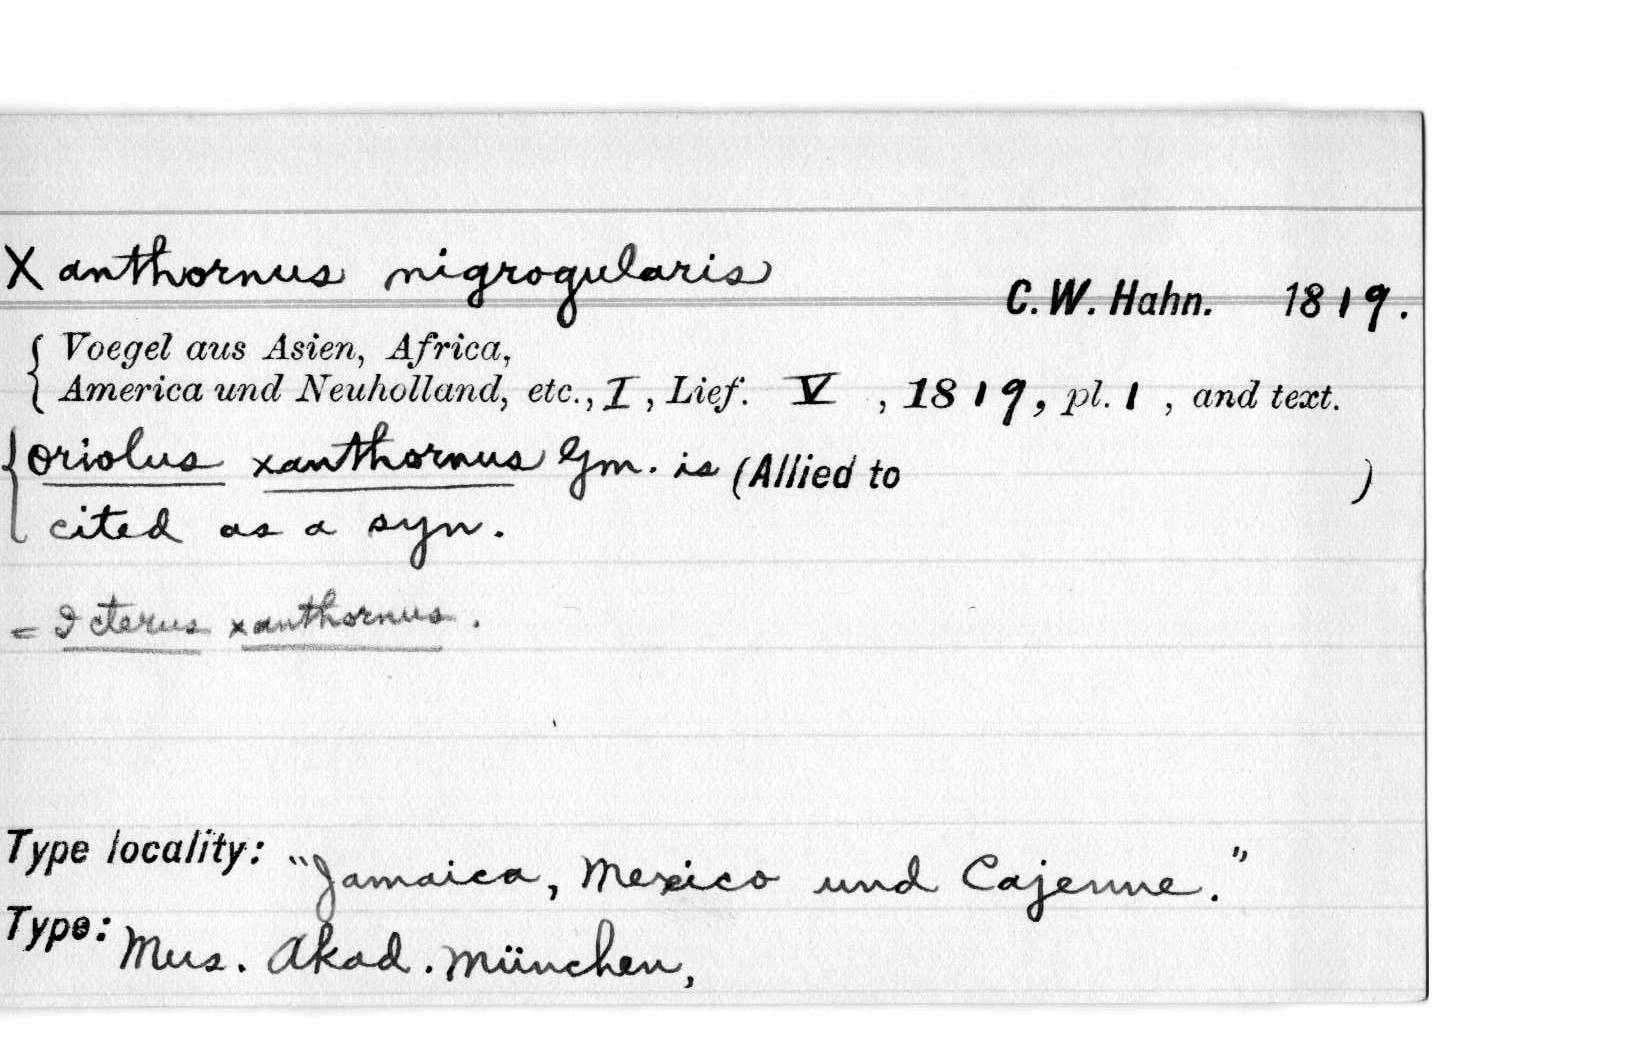 Xanthornus nigrogularis C. W. Hahn. 1819.
Voegel aus Asien, Africa,
America und Neuholland, etc., I, Lief. V, 1819, pl. 1, and text.
Oriolus xanthornus Gm. is (Allied to )
cited as a syn.
= Icterus xanthornus.
Type locality: "Jamaica, Mexico und Cajenne."
Type: Mus. Akad. München,